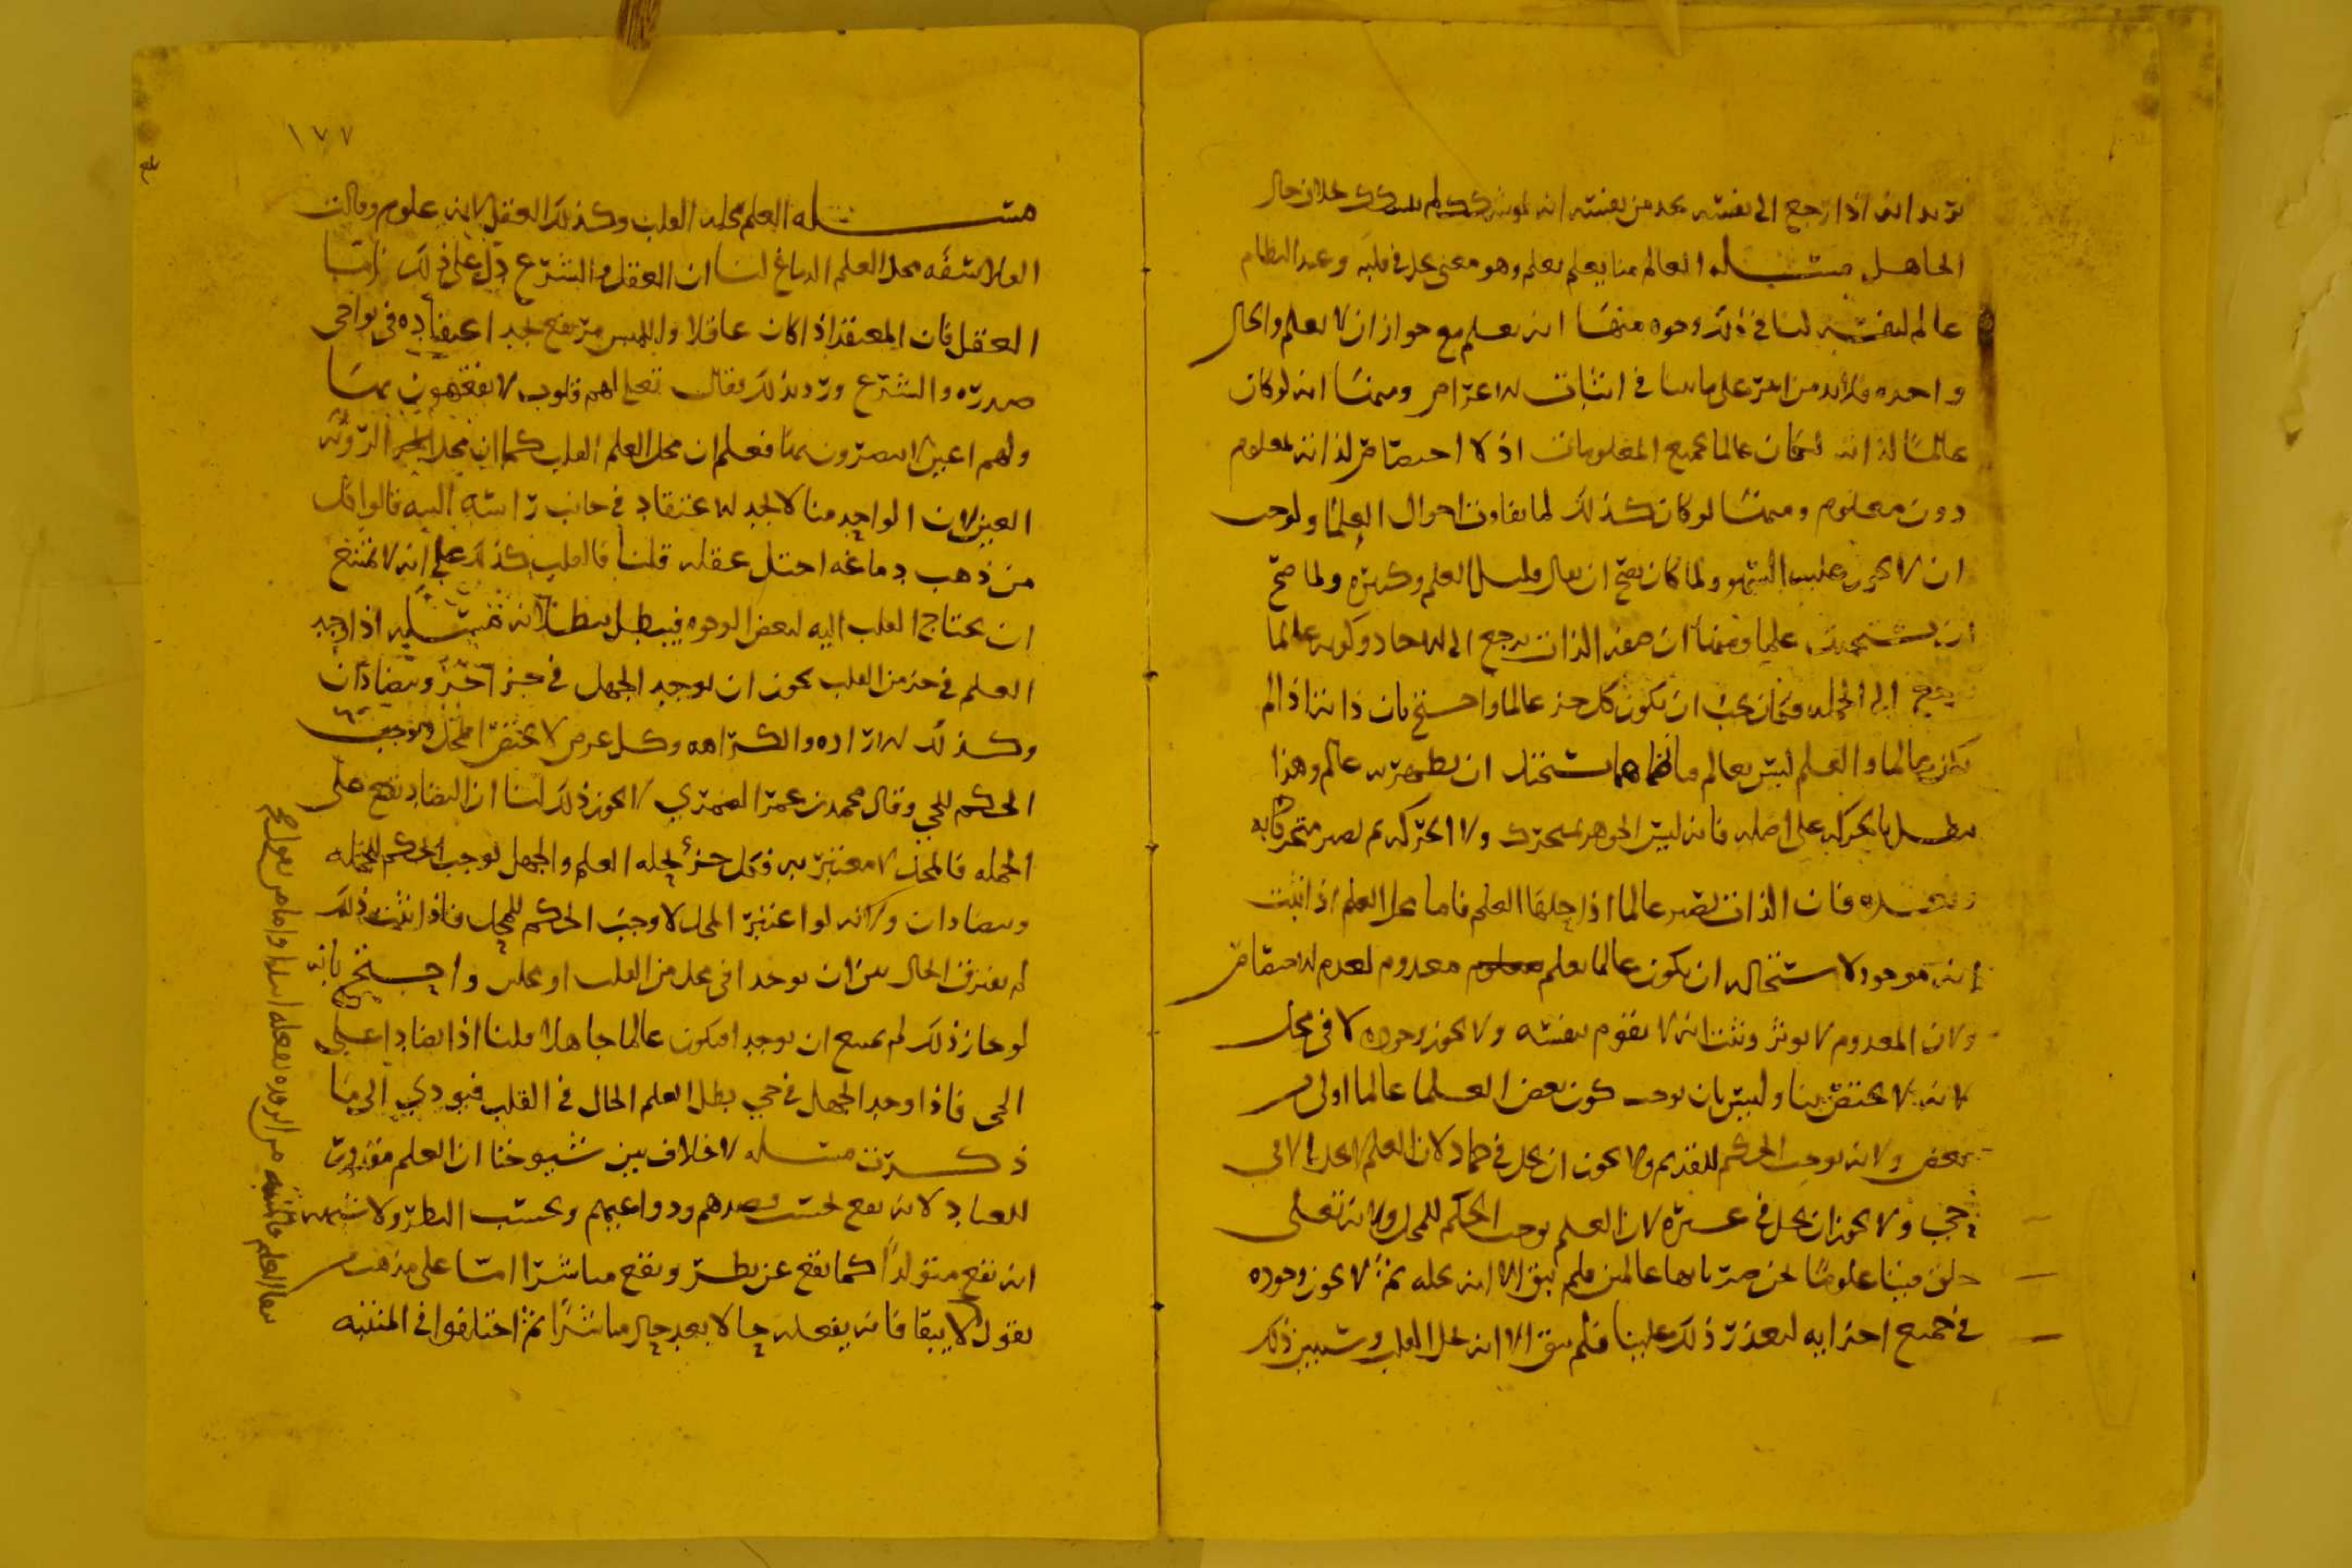 نريد انه اذا رجع الى نفسه يجد من نفسه انه لم يشك بخلاف حال
الجاهل مسله العالم منا يعلم بعلم وهو معنى يحل في قلبه وعند النظام
عالم لنفسه لنا في ذلك وجوه منها انه يعلم مع جواز ان لا يعلم والحال
واحده فلا بد من امر على ما بينا في اثبات الاعراض ومنها انه لو كان
عالما لذاته لكان عالما بجميع المعلومات اذ لا اختصاص لذاته بمعلوم
دون معلوم ومنها لو كان كذلك لما تفاوت احوال العلما ولوجب
ان لا يجوز عليه السهو ولما كان يصح ان يقال قليل العلم وكثيره ولما صح
ان يستحدث علما ومنها ان صفه الذات يرجع الى الاحاد وكونه عالما
يرجع الى الجمله فكان يجب ان يكون كل جز عالما واحتج بان ذاته اذا لم
يكن عالما والعلم ليس بعالم فانضمامهما يستحيل ان يظهر به عالم وهذا
يبطل بالحركه على اصله فانه ليس الجوهر بمتحرك ولا الحركه ثم يصير متحركا به
وبعد فان الذات يصير عالما اذا حلها العلم فاما محل العلم اذا ثبت
انه موجود لاستحاله ان يكون عالما بعلم معدوم لعدم الاختصاص
ولان المعدوم لا يوثر وثبت انه لا يقوم بنفسه ولا يجوز وجوده لا في محل
لانه لا يختص بنا وليس بان يوجب كون بعض العلما عالما اولى من
بعض ولانه يوجب الحكم للقديم ولا يجوز ان يحل في جماد لان العلم لا يحل الا في
حي ولا يجوز ان يحل في غيره لان العلم يوجب الحكم للمحل ولانه تعالى
خلق فينا علوما نحن صرنا بها عالمين فلم يبق الا انه يحله ثم لا يجوز وجوده
في جميع اجزايه لتعذر ذلك علينا فلم يبق الا انه يحل القلب وسنبين ذلك
١٧٧
مسله العلم محله القلب وكذلك العقل لانه علوم وقالت
الفلاسفه محل العلم الدماغ لنا ان العقل والشرع دل على ذلك اما
العقل فان المعتقد اذا كان عاقلا واللبس مرتفع يجد اعتقاده في نواحي
صدره والشرع ورد بذلك فقال تعلى لهم قلوب لا يفقهون بها
ولهم اعين لا يبصرون بها فعلم ان محل العلم القلب كما ان محل الرويه
العين لان الواحد منا لا يجد الاعتقاد في جانب راسه البته قالوا فكل
من ذهب دماغه اختل عقله قلنا فالقلب كذلك على انه لا يمتنع
ان يحتاج القلب اليه لبعض الوجوه فيبطل ببطلانه مسله اذا وجد
العلم في جز من القلب يجوز ان يوجد الجهل في جز اخر ويتضادان
وكذلك الاراده والكراهه وكل عرض لا يختص المحل ويوجب
الحكم للحي وقال محمد بن عمر الصيمري لا يجوز ذلك لنا ان التضاد يقع على
الجمله فالمحل لا معتبر به فكل جزء يحله العلم والجهل يوجب الحكم للجمله
ويتضادان ولانه لو اعتبر المحل لاوجب الحكم للمحل فاذا ثبت ذلك
لم يفترق الحال بين ان يوجدا في محل من القلب او محلين واحتج بانه
لو جاز ذلك لم يمتنع ان يوجدا فيكون عالما جاهلا قلنا اذا تضادا على
الحي فاذا وجد الجهل في حي بطل العلم الحال في القلب فيودي الى ما
ذكرت مسله لا خلاف بين شيوخنا ان العلم مقدور
للعباد لانه يقع بحسب قصدهم ودواعيهم وبحسب النظر ولا شبهه
انه يقع متولدا كما يقع عن نظر ويقع مباشرا اما على مذهب من
يقول لا يبقا فانه يفعله حالا بعد حال مباشرا ثم اختلفوا في المنتبه